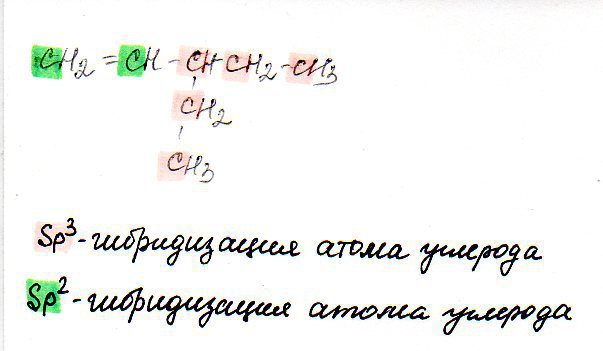 CH₂ = CH - CH CH₂ - CH₃
CH₂
CH₃
Sp³ - гибридизация атома углерода
Sp² - гибридизация атома углерода